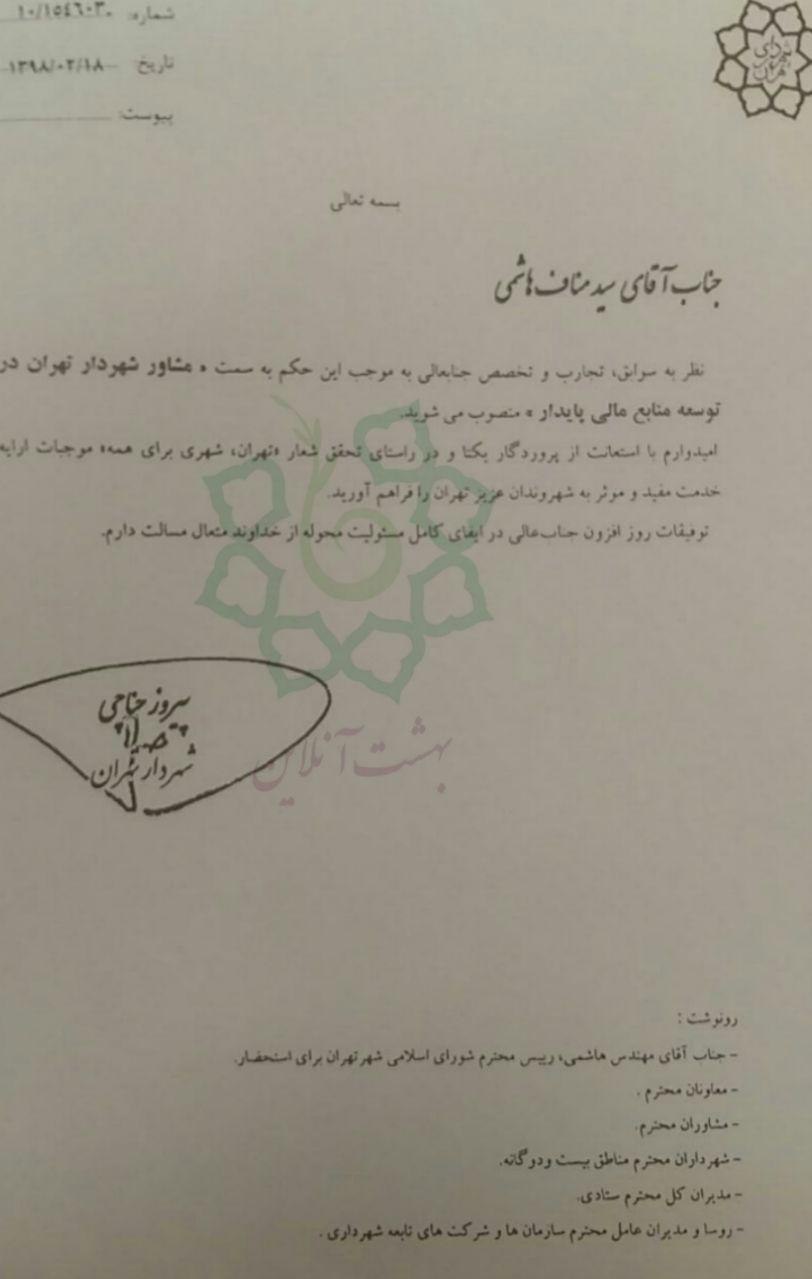 شماره: ۱۰/۱۵۴۶۰۳۰
تاریخ: ۱۳۹۸/۰۲/۱۸
پیوست:
شهرداری تهران
بسمه تعالی
جناب آقای سید مناف هاشمی
نظر به سوابق، تجارب و تخصص جنابعالی به موجب این حکم به سمت « مشاور شهردار تهران در
توسعه منابع مالی پایدار » منصوب می شوید.
امیدوارم با استعانت از پروردگار یکتا و در راستای تحقق شعار «تهران، شهری برای همه» موجبات ارایه
خدمت مفید و موثر به شهروندان عزیز تهران را فراهم آورید.
توفیقات روز افزون جناب‌عالی در ایفای کامل مسئولیت محوله از خداوند متعال مسالت دارم.
پیروز حناچی
شهردار تهران
بهشت آنلاین
رونوشت :
- جناب آقای مهندس هاشمی، رییس محترم شورای اسلامی شهر تهران برای استحضار.
- معاونان محترم .
- مشاوران محترم.
- شهرداران محترم مناطق بیست ودوگانه.
- مدیران کل محترم ستادی.
- روسا و مدیران عامل محترم سازمان ها و شرکت های تابعه شهرداری .